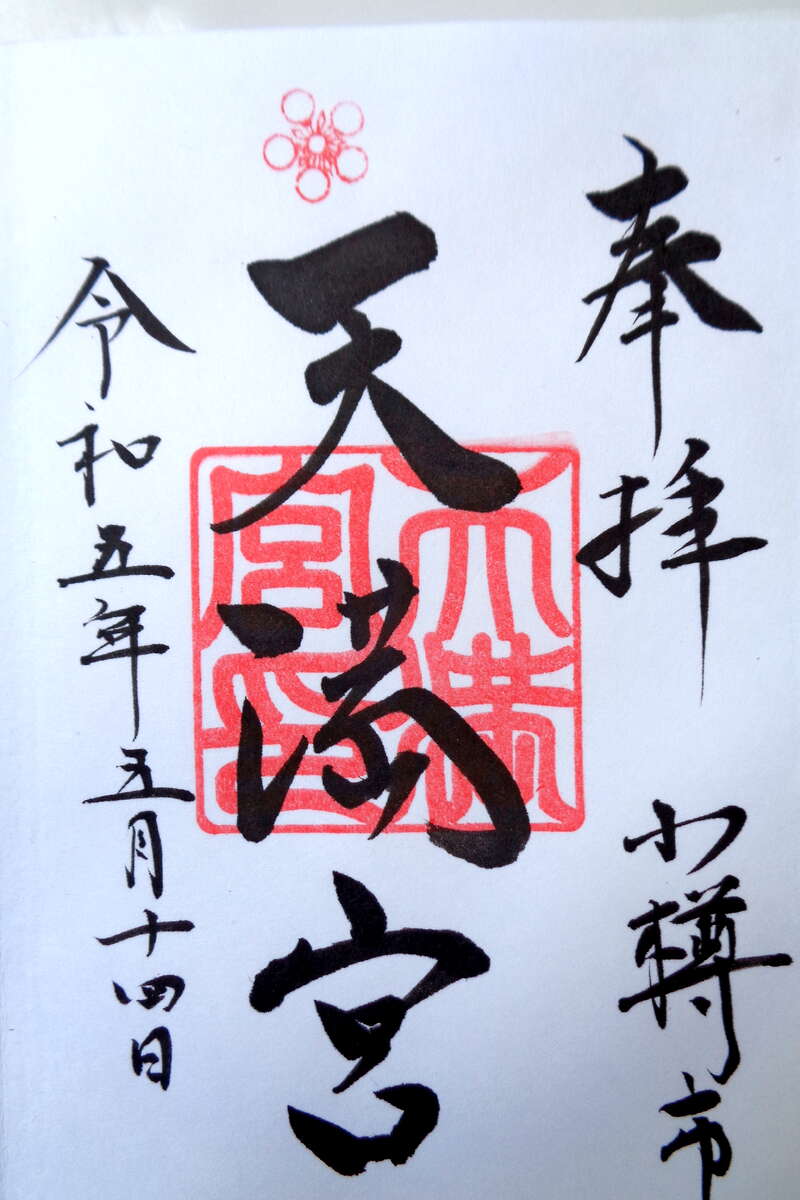 奉拝
小樽市
天満宮
令和五年五月十四日